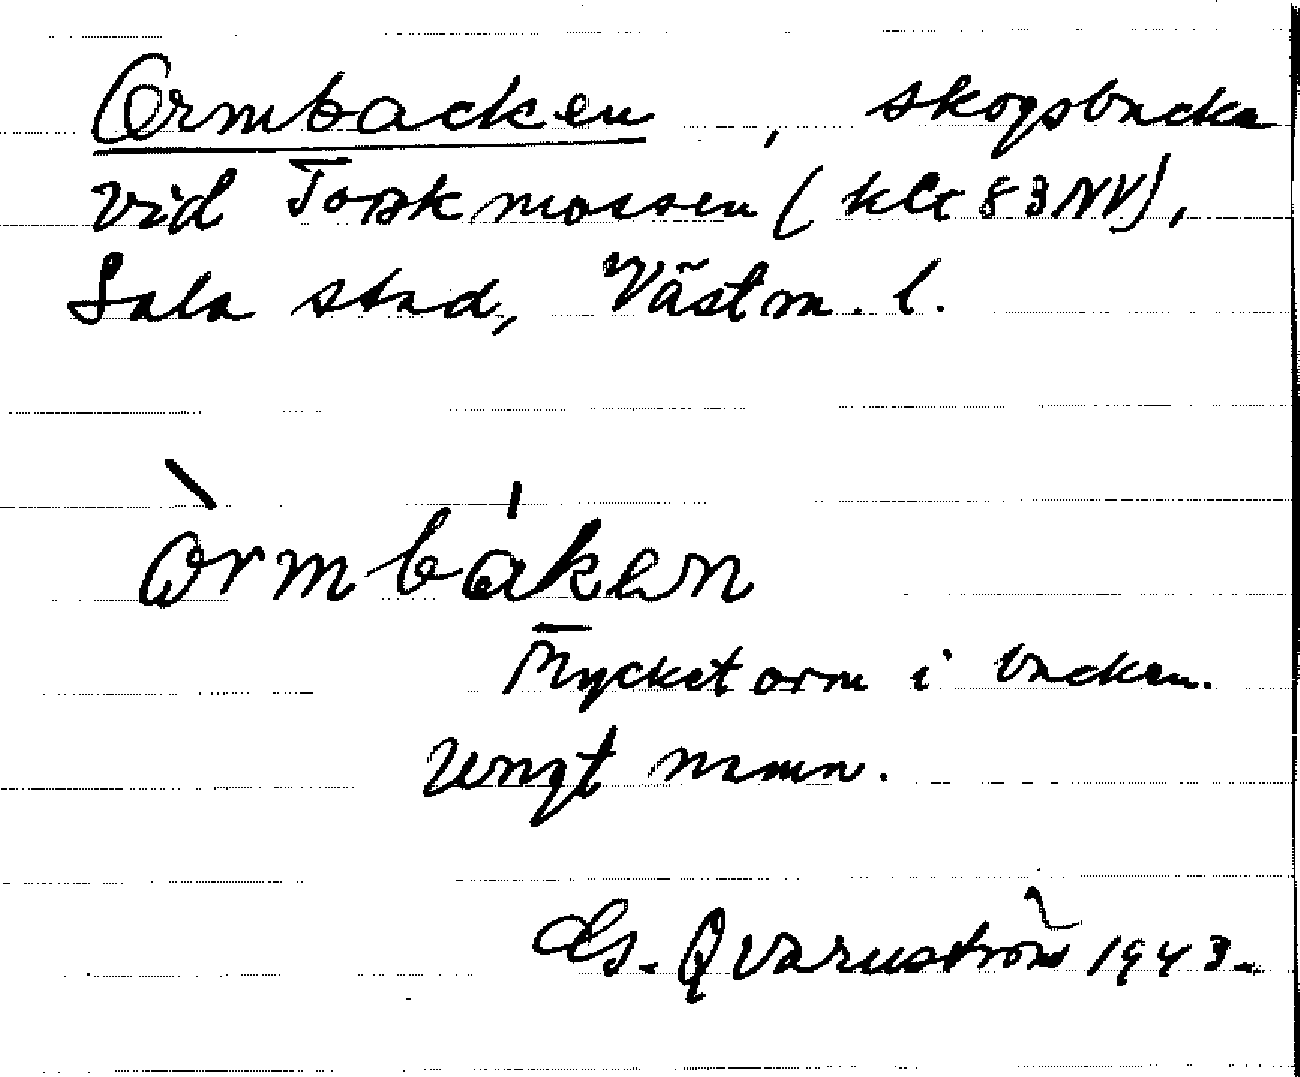 Ormbacken, skogsbacke
vid Torkmossen (klt 83NV),
Sala stad, Västm. l.
òrmbáken
Mycket orm i backen.
Ungt namn.
Gs. Qvarnström 1943.